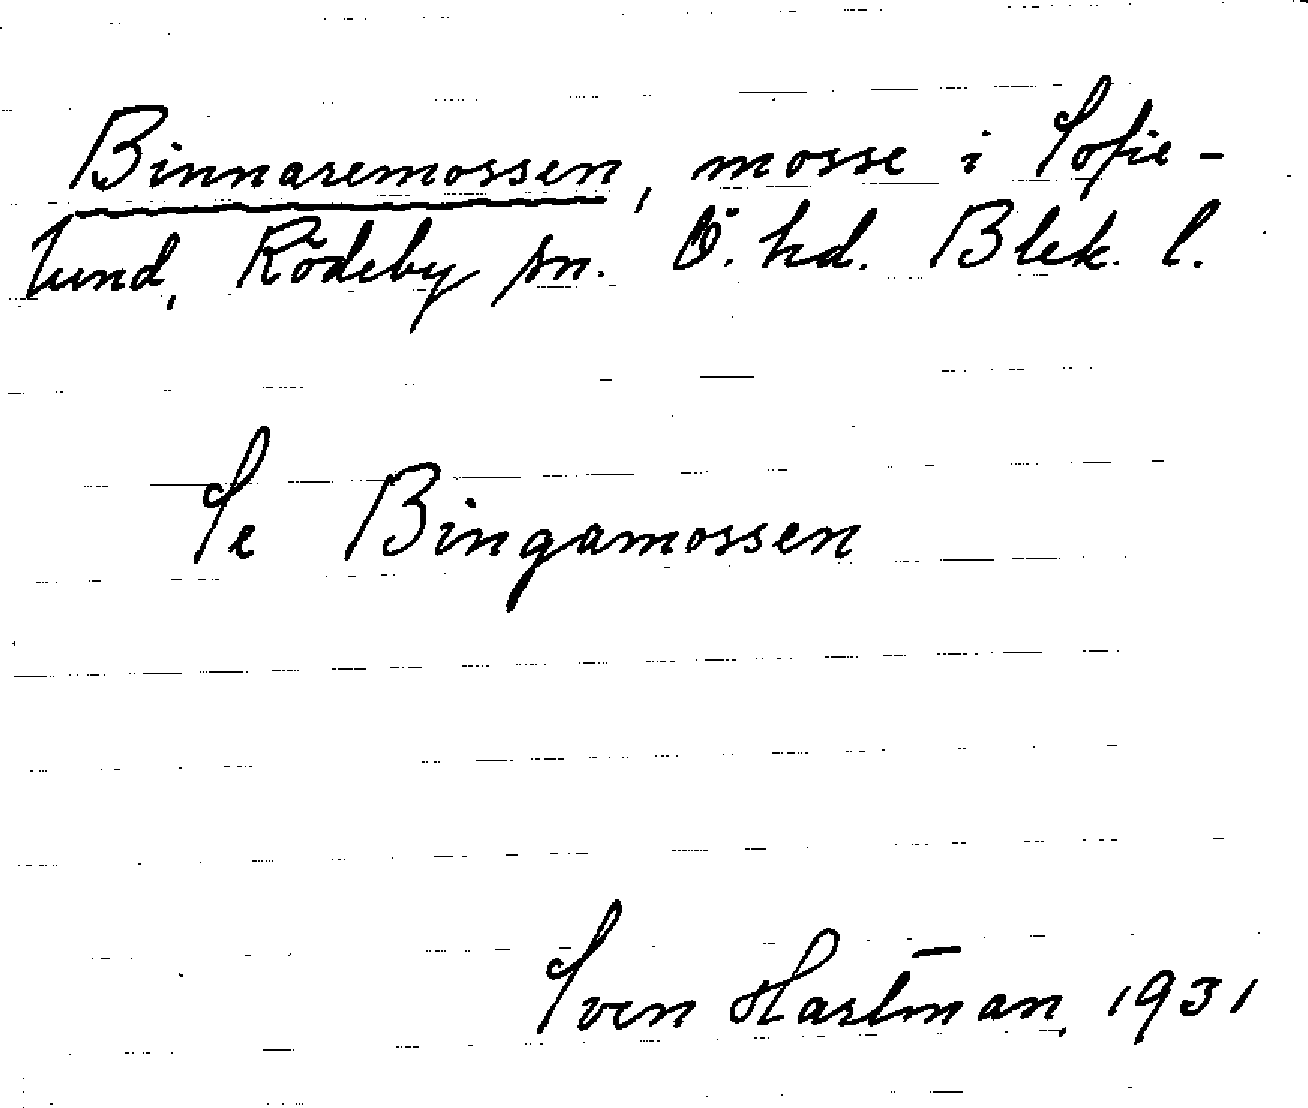 Binnaremossen, mosse i Sofie-
lund, Rödeby sn. Ö. hd. Blek. l.
Se Bingamossen
Sven Hartman, 1931